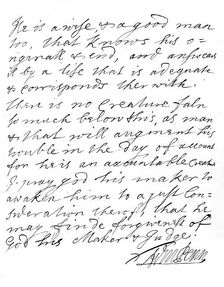 He is a wise & a good man
too, that knows his o-
riginall & end, and answears
it by a life that is adequate
& corrisponds therwith.
there is no Creature faln
so much below this, as man
& that will augment his
trouble in the day of account
for he is an accountable Creature
I pray god his maker to
awaken him to a just Con-
sideration therof, that he
may finde forgiveness of
God his Maker & Judge.
Wm Penn